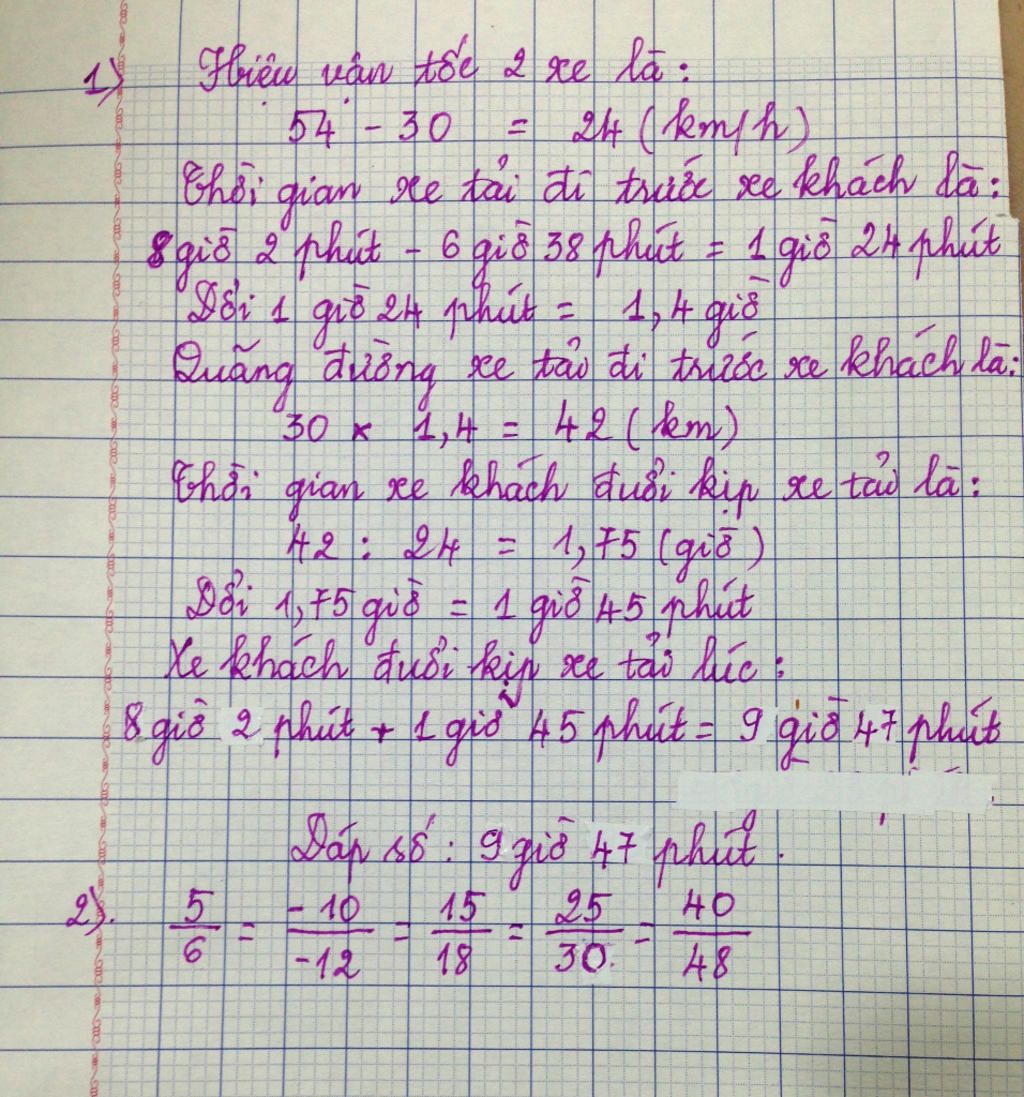 1) Hiệu vận tốc 2 xe là:
54 - 30 = 24 (km/h)
Thời gian xe tải đi trước xe khách là:
8 giờ 2 phút - 6 giờ 38 phút = 1 giờ 24 phút
Đổi 1 giờ 24 phút = 1,4 giờ
Quãng đường xe tải đi trước xe khách là:
30 × 1,4 = 42 (km)
Thời gian xe khách đuổi kịp xe tải là:
42 : 24 = 1,75 (giờ)
Đổi 1,75 giờ = 1 giờ 45 phút
Xe khách đuổi kịp xe tải lúc:
8 giờ 2 phút + 1 giờ 45 phút = 9 giờ 47 phút
Đáp số: 9 giờ 47 phút.
2). 5/6 = -10/-12 = 15/18 = 25/30 = 40/48